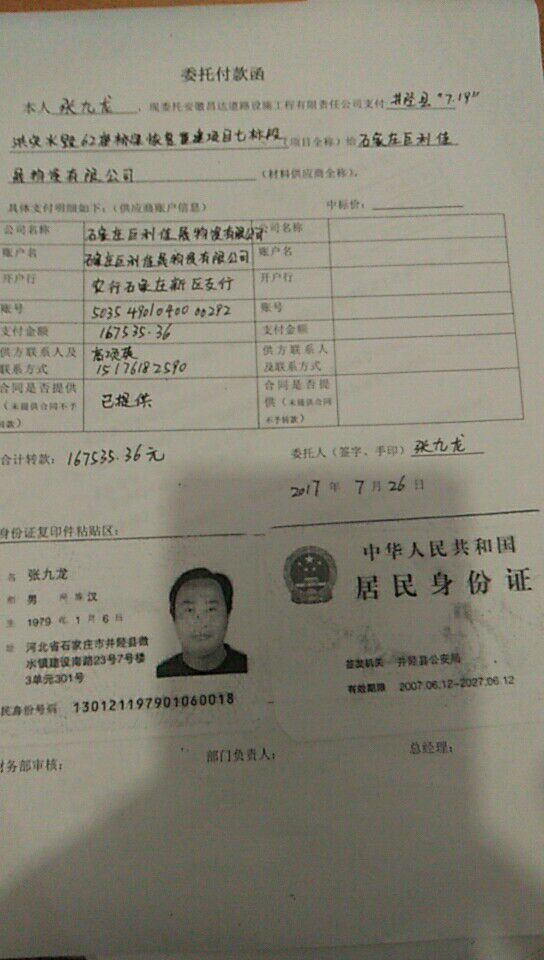 委托付款函
本人 张九龙 ,现委托安徽昌达道路设施工程有限责任公司支付 井陉县"7.19"
洪灾水毁62座桥梁恢复重建项目七标段(项目全称)给石家庄巨利佳
晟物资有限公司(材料供应商全称)。
具体支付明细如下:(供应商账户信息) 中标价:
公司名称 石家庄巨利佳晟物资有限公司 公司名称
账户名 石家庄巨利佳晟物资有限公司 账户名
开户行 农行石家庄新区支行 开户行
账号 5035 4901 0400 00292 账号
支付金额 167535.36 支付金额
供方联系人及 供方联系人
联系方式 15176182590 及联系方式
合同是否提供 已提供 合同是否提
(未提供合同不予 供(未提供合同
转款) 不予转款)
合计转款: 167535.36元 委托人(签字、手印) 张九龙
2017 年 7 月 26 日
身份证复印件粘贴区:
名 张九龙
男 汉
1979 年 1 月 6 日
河北省石家庄市井陉县微
水镇建设南路23号7号楼
3单元301号
民身份号码 130121197901060018
中华人民共和国
居民身份证
签发机关 井陉县公安局
有效期限 2007.06.12-2027.06.12
财务部审核: 部门负责人: 总经理: